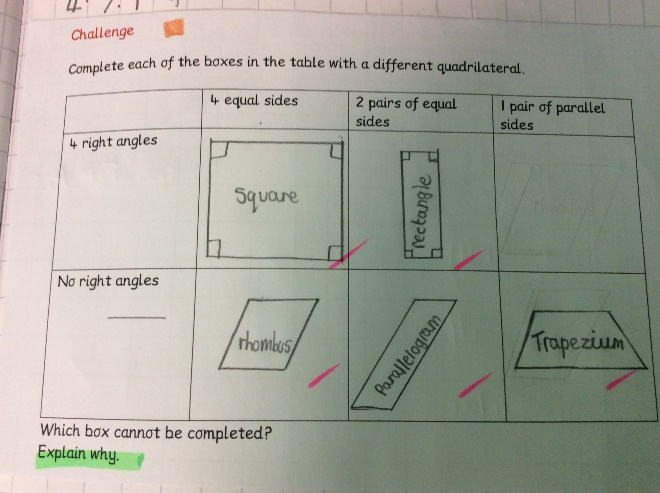 Challenge
Complete each of the boxes in the table with a different quadrilateral.
4 equal sides
2 pairs of equal
sides
1 pair of parallel
sides
4 right angles
Square
rectangle
No right angles
rhombus
Parallelogram
Trapezium
Which box cannot be completed?
Explain why.